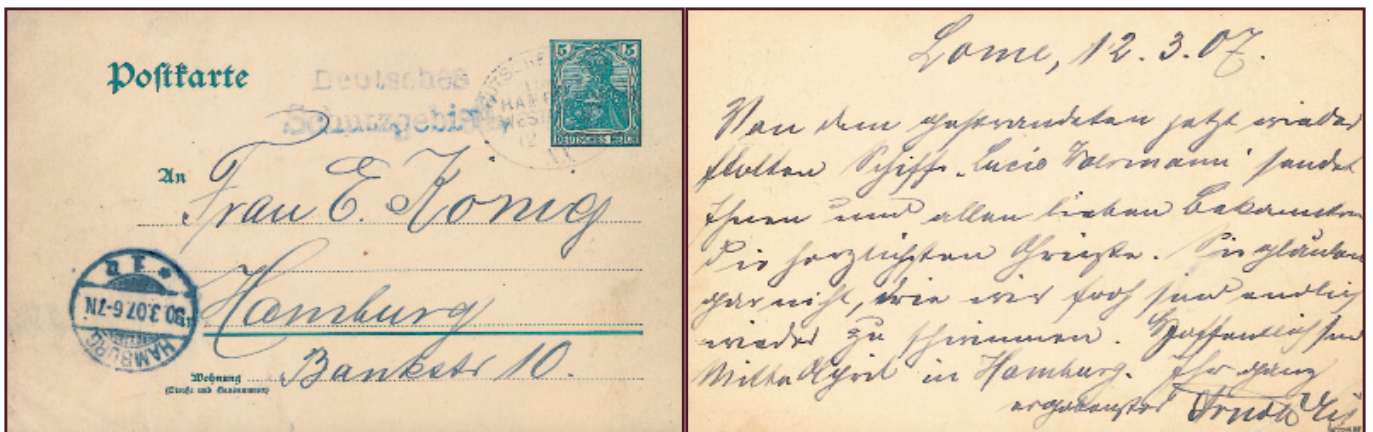 Postkarte
Deutsches
Schutzgebiet
5 5
DEUTSCHES REICH
An
Frau E. König
Hamburg
Wohnung
(Straße und Hausnummer)
Bankstr 10.
30.3.07.6-7N
HAMBURG
Lome, 12.3.07.
Von dem gestrandeten jetzt wieder
flotten Schiffe „Lucie Woermann" sendet
Ihnen und allen lieben Bekannten
die herzlichsten Grüsse. Sie glauben
gar nicht, wie wir froh sind endlich
wieder zu schwimmen. Hoffentlich sind
Mitte April in Hamburg. Ihr ganz
ergebenster